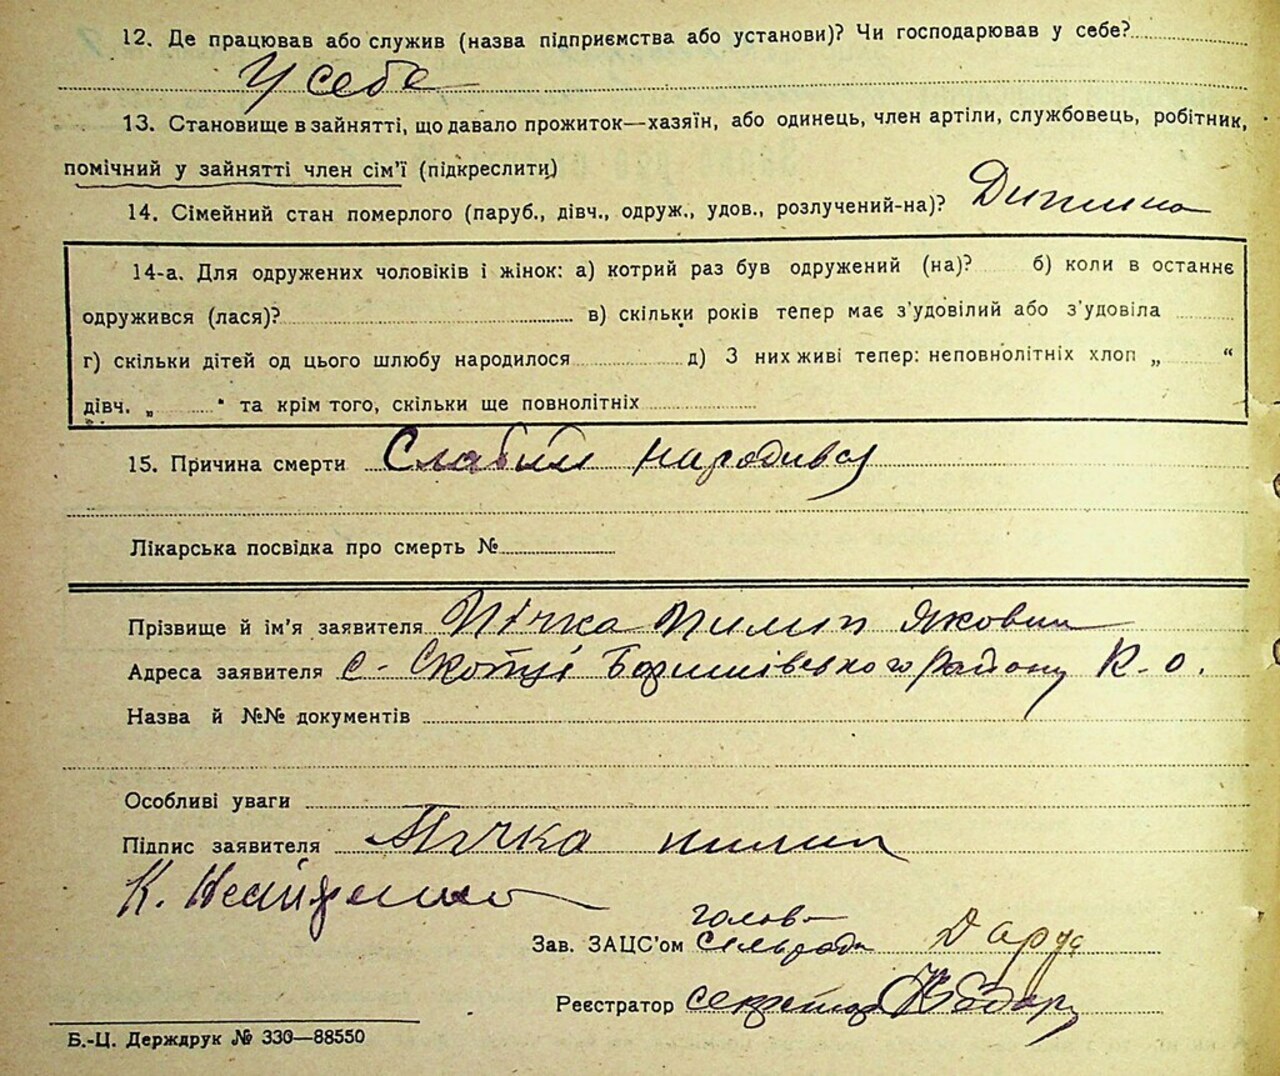 12. Де працював або служив (назва підприємства або установи)? Чи господарював у себе?
У себе
13. Становище в зайнятті, що давало прожиток—хазяїн, або одинець, член артіли, службовець, робітник,
помічний у зайнятті член сім'ї (підкреслити)
14. Сімейний стан померлого (паруб., дівч., одруж., удов., розлучений-на)? Дитина
14-а. Для одружених чоловіків і жінок: а) котрий раз був одружений (на)? б) коли в останнє
одружився (лася)? в) скільки років тепер має з'удовілий або з'удовіла
г) скільки дітей од цього шлюбу народилося д) З них живі тепер: неповнолітніх хлоп „ “
дівч. „ “ та крім того, скільки ще повнолітніх
15. Причина смерти Слабим народився
Лікарська посвідка про смерть №
Прізвище й ім'я заявителя Пічка Пилип Якович
Адреса заявителя с. Скотці Баришівського району К. о.
Назва й №№ документів
Особливі уваги
Підпис заявителя Пічка пилип
К.
голова
Зав. ЗАЦС'ом сільради
Реєстратор секретар
Б.-Ц. Держдрук № 330—88550